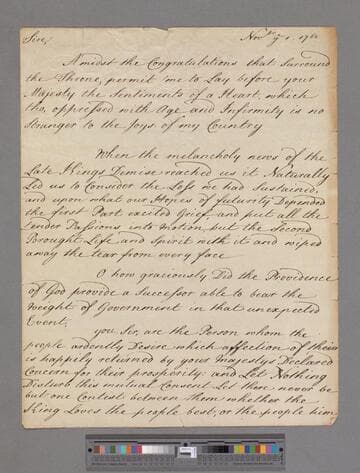 Sire, Novr ye 1. 1760
Amidst the Congratulations that Surround
the Throne, permit me to Lay before your
Majesty the Sentiments of a Heart, which
tho, oppressed with Age and Infirmity is no
Stranger to the Joys of my Country
When the melancholy news of the
Late Kings Demise reached us it Naturally
Led us to Consider the Loss we had Sustained,
and upon what our Hopes of futurity Depended
the first Part excited Grief and put all the
tender Passions into Motion, but the Second
Brought Life and Spirit with it and wiped
away the tear from every face
O how graciously Did the Providence
of God provide a Successor able to bear the
Weight of Government in that unexpected
Event.
you Sir, are the Person whom the
people ardently Desire which affection of theirs
is happily returned by your Majestys Declared
Concern for their prosperity: and Let Nothing
Disturb this mutual Consent Let there never be
but one Contest between them whether the
King Loves the people best, or the people him